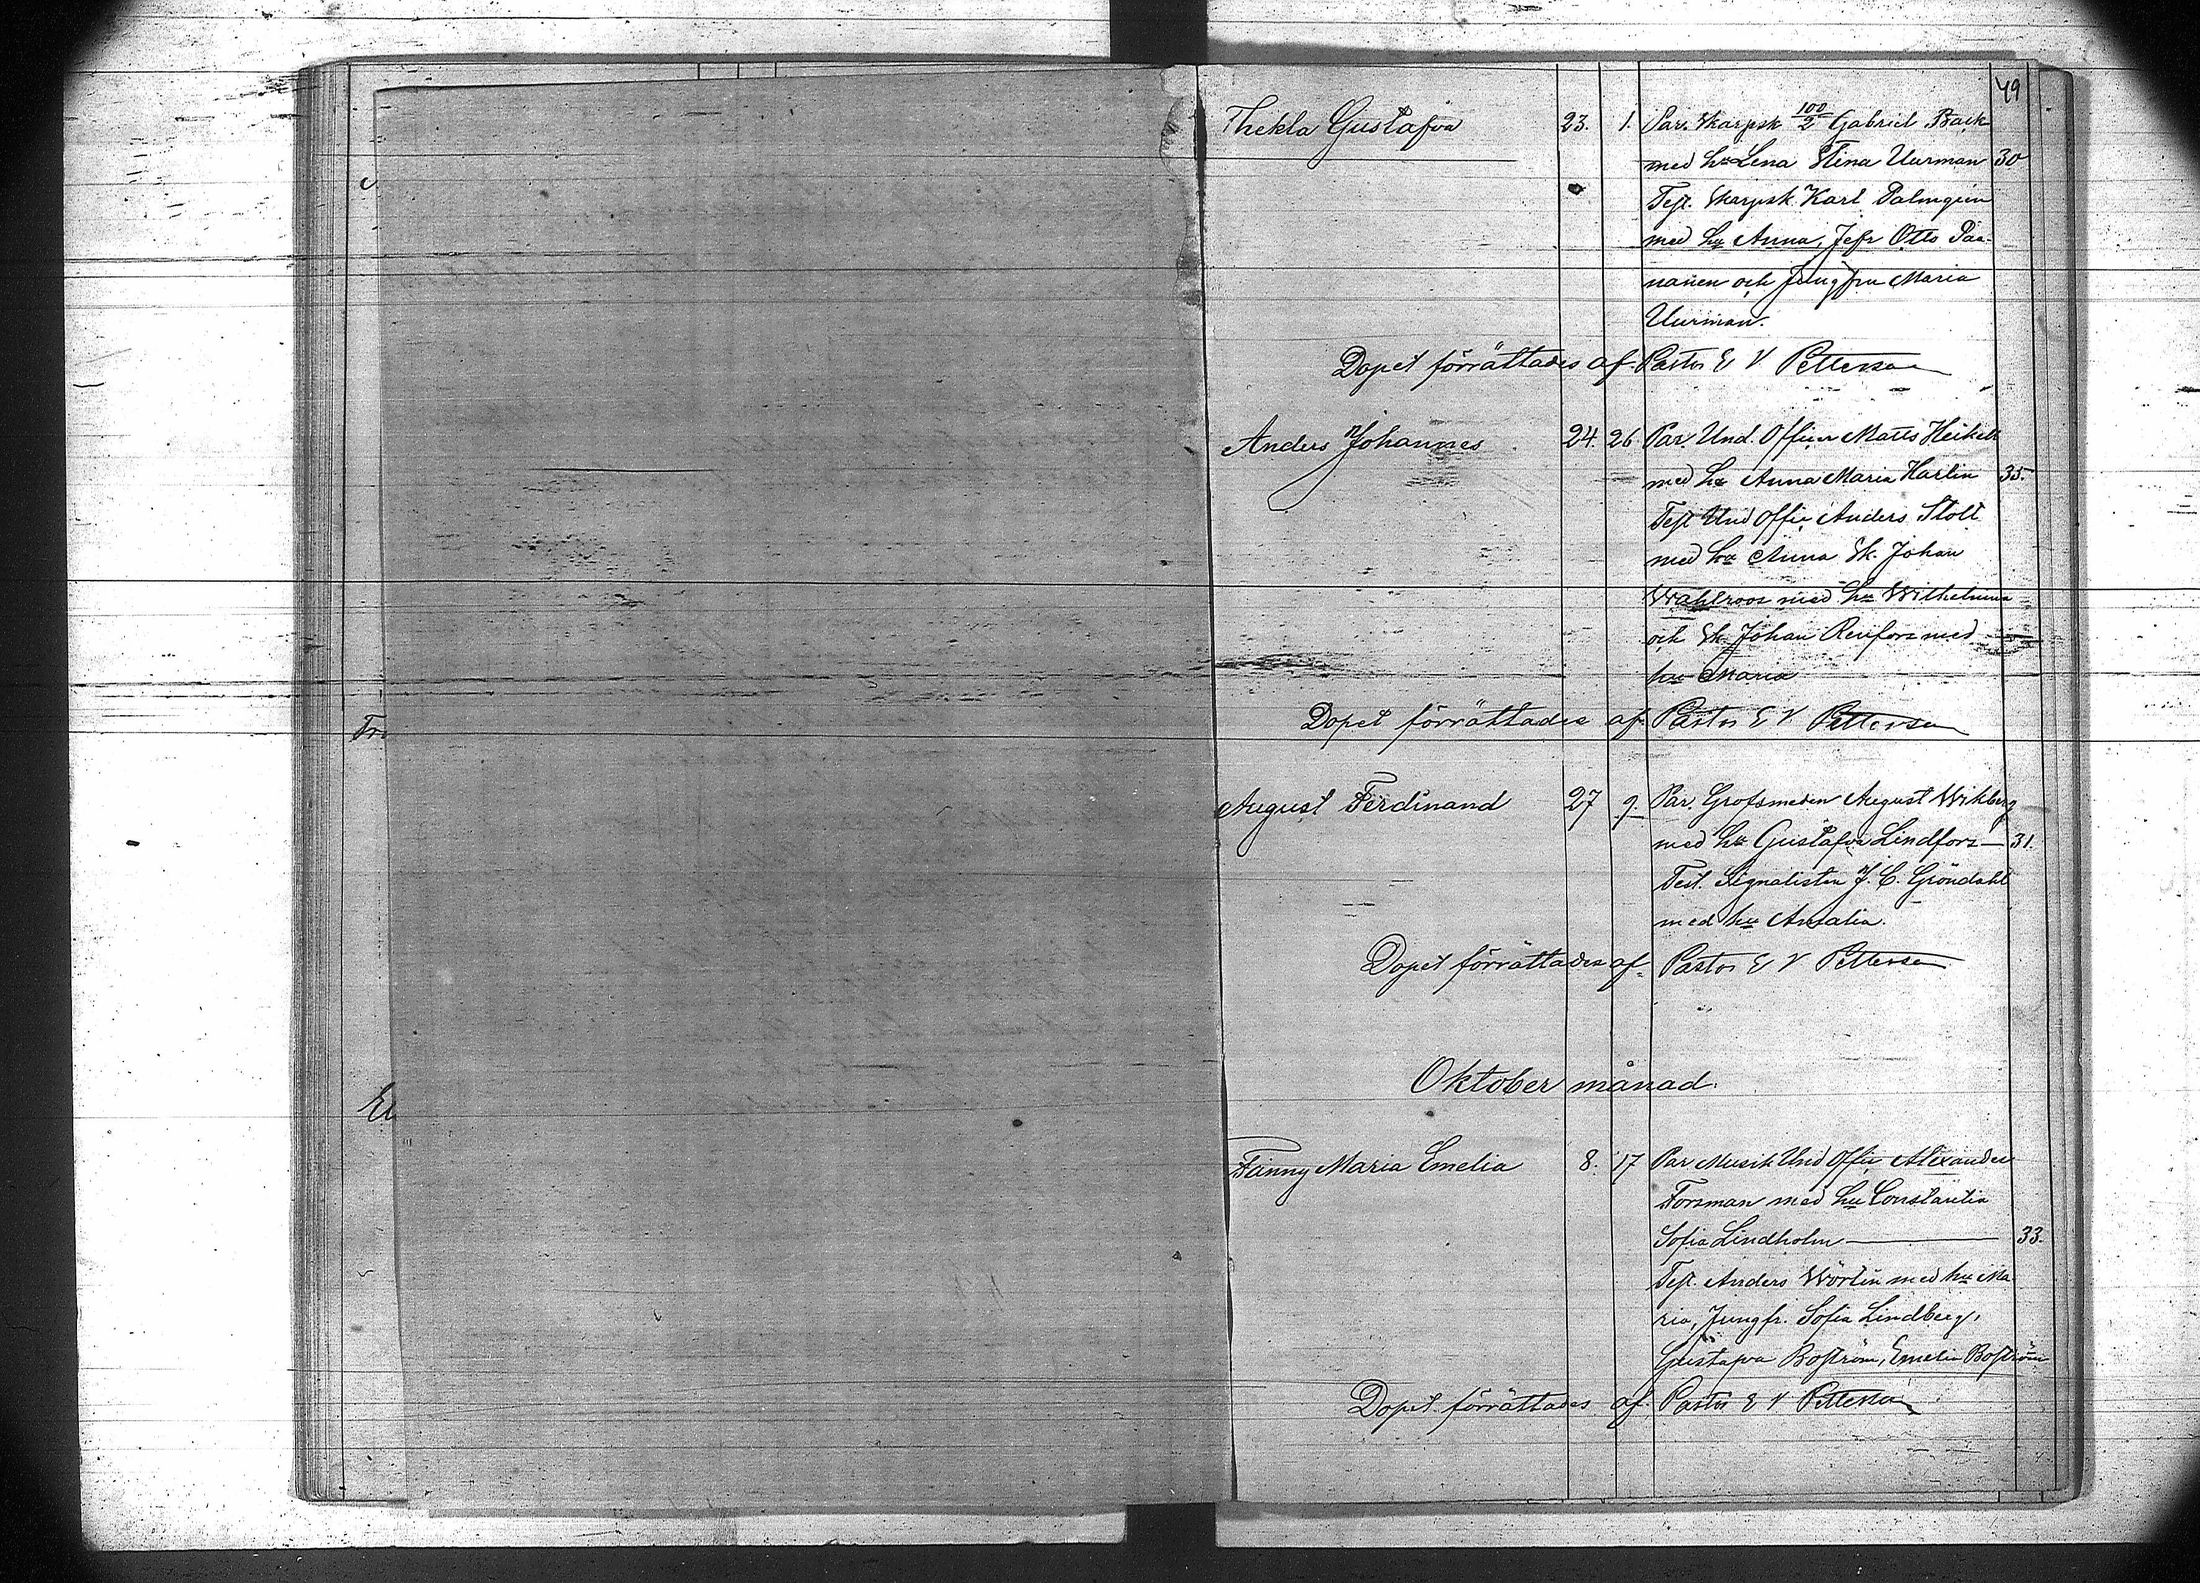 49
Thekla Gustafva 23. 1. Par. Skarpsk 100/2 Gabriel Back
med hu Lena Stina Uurman 30
Test. Skarpsk. Karl Palmqvin
med hu Anna, Jefr Otto Paa-
nanen och Jungfru Maria
Uurman.
Dopet förrättades af Pastor E V Petterson
Anders Johannes 24. 26 Par. Und. Officer Matts Heikell
med hu Anna Maria Harlin 35.
Test Und Offic Anders Stolt
med hu Anna Sk. Johan
Wahlroos med hu Wilhelmina
och Sk. Johan Renfors med
hu Maria
Dopet förrättades af Pastor E V Petterson
Tro
August Ferdinand 27 9. Par. Grofsmeden August Wikberg
med hu Gustafva Lindfors — 31.
Test. Signalisten J. C. Gröndahl
med hu Amalia.
Dopet förrättades af Pastor E V Petterson
Oktober månad.
Fanny Maria Emelia 8. 17 Par Musik Und Offic Alexander
Forsman med hu Constantia
Sofia Lindholm — 33.
Test. Anders Wörlin med hu Ma
ria, Jungfr. Sofia Lindberg,
Gustafva Boström, Emelie Boström
Dopet förrättades af Pastor E V Petterson